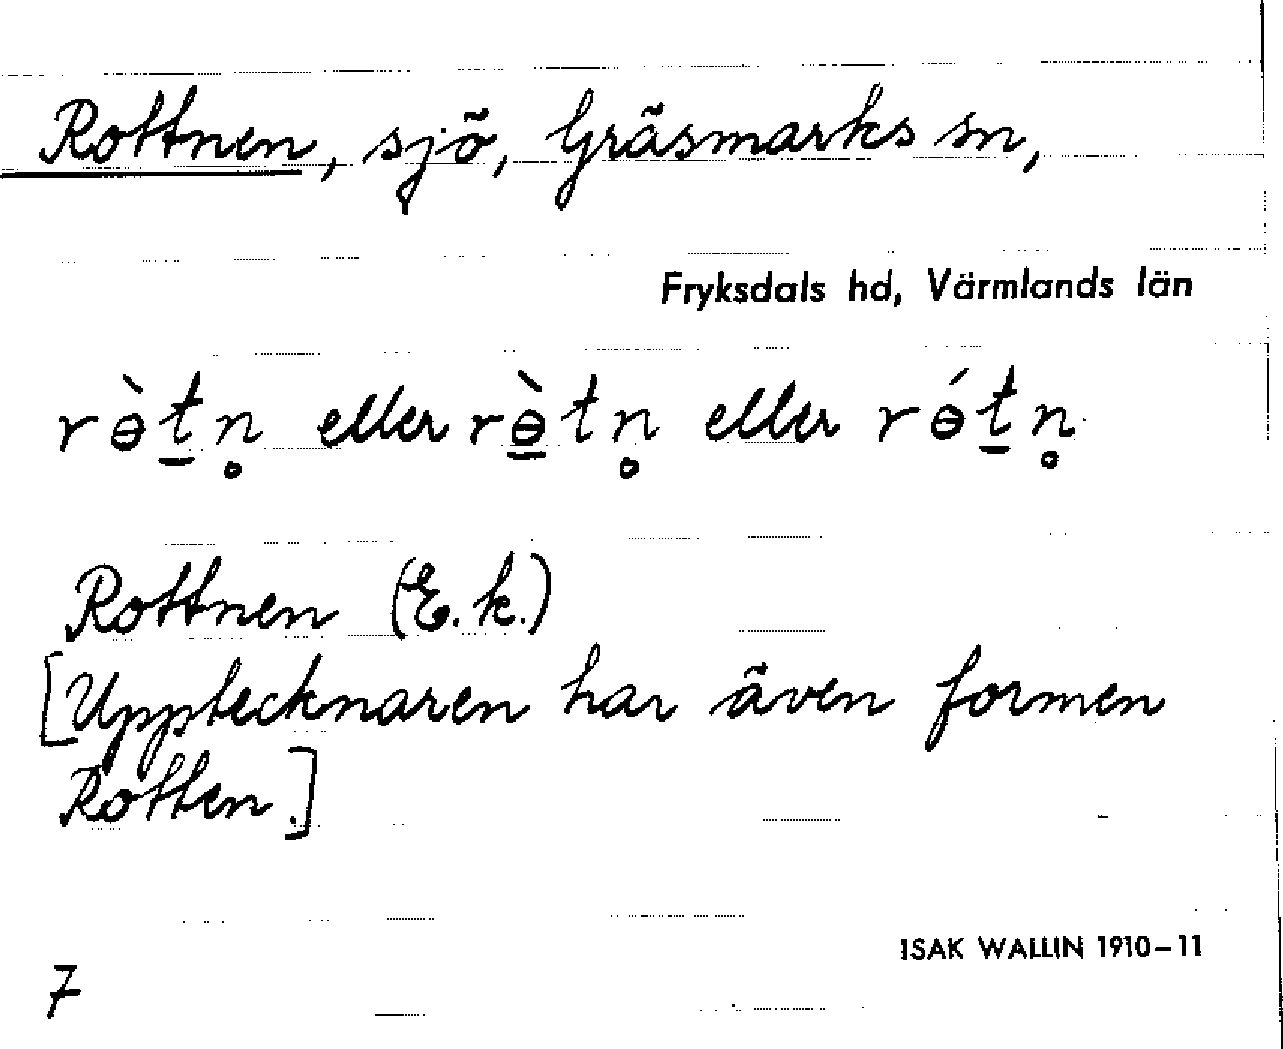 Rottnen, sjö, Gräsmarks sn,
Fryksdals hd, Värmlands län
rɵ̀t̲n̥ eller rɵ̲̀tn̥ eller rɵ́t̲n̥
Rottnen (E.k.)
[Upptecknaren har även formen
Rotten.]
ISAK WALLIN 1910–11
7